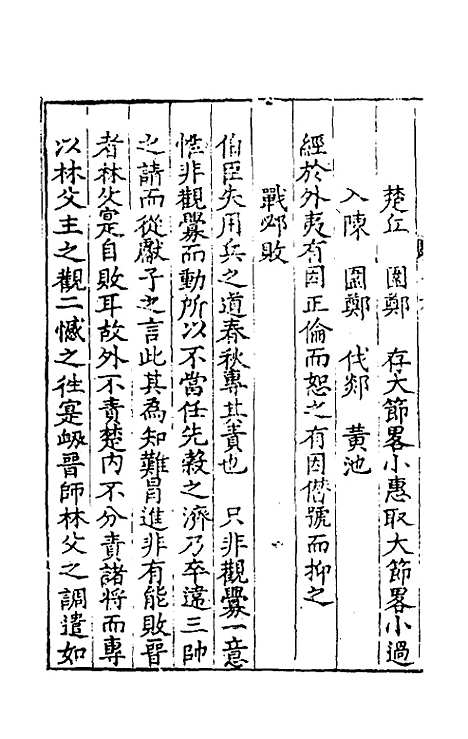 楚丘　圍鄭　存大節畧小惠取大節畧小過
入陳　圍鄭　伐郯　黃池
經於外夷有因正倫而恕之有因僣號而抑之
戰邲敗
伯臣失用兵之道春秋專其責也　只非觀釁一意
惟非觀釁而動所以不當任先縠之濟乃卒違三帥
之請而從獻子之言此其為知難冒進非有能敗晉
者林父寔自敗耳故外不責楚内不分責諸將而專
以林父主之觀二憾之徃寔衂晉師林父之調遣如